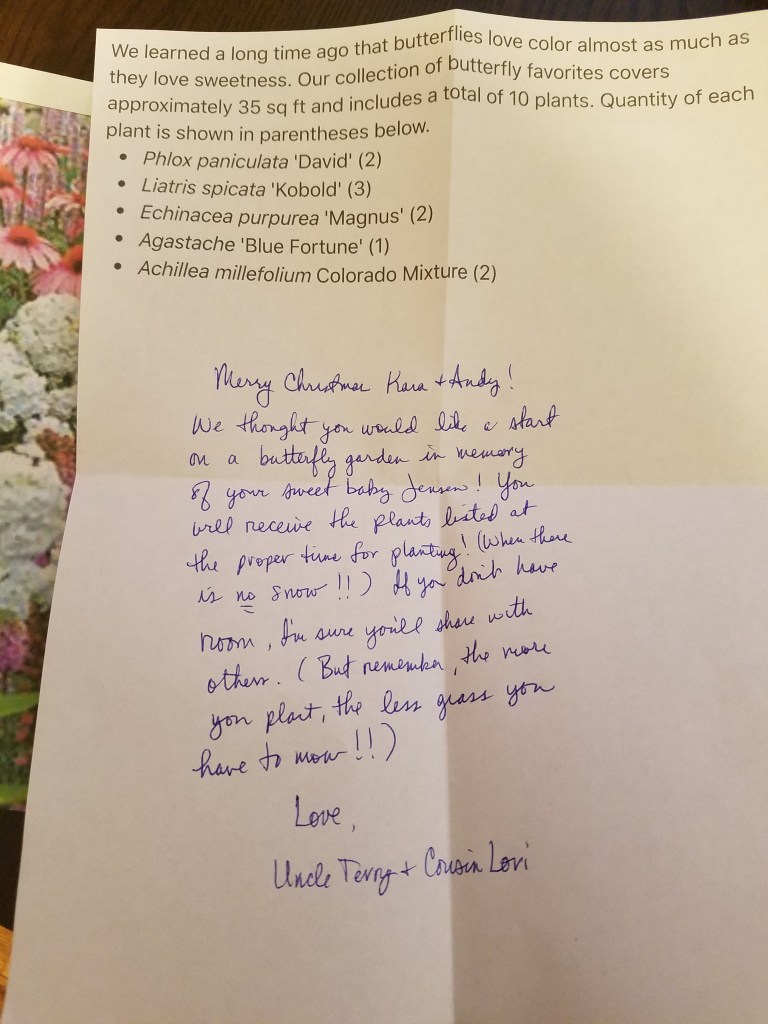 We learned a long time ago that butterflies love color almost as much as
they love sweetness. Our collection of butterfly favorites covers
approximately 35 sq ft and includes a total of 10 plants. Quantity of each
plant is shown in parentheses below.
• Phlox paniculata 'David' (2)
• Liatris spicata 'Kobold' (3)
• Echinacea purpurea 'Magnus' (2)
• Agastache 'Blue Fortune' (1)
• Achillea millefolium Colorado Mixture (2)
Merry Christmas Kara + Andy!
We thought you would like a start
on a butterfly garden in memory
of your sweet baby Jensen! You
will receive the plants listed at
the proper time for planting! (When there
is no snow!!) If you don't have
room, I'm sure you'll share with
others. (But remember, the more
you plant, the less grass you
have to mow!!)
Love,
Uncle Terry + Cousin Lori